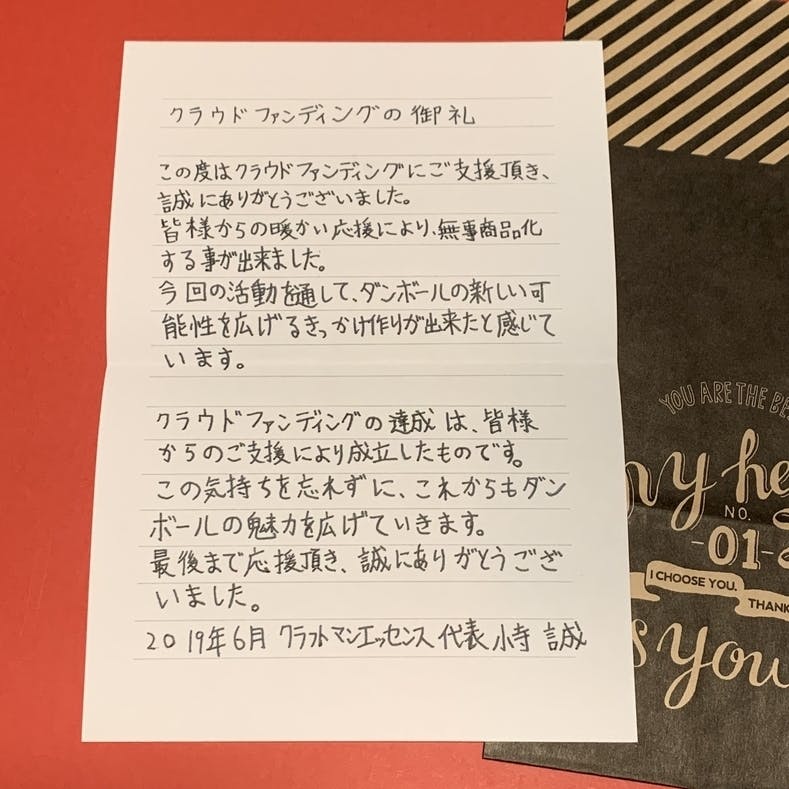 クラウドファンディングの御礼
この度はクラウドファンディングにご支援頂き、
誠にありがとうございました。
皆様からの暖かい応援により、無事商品化
する事が出来ました。
今回の活動を通して、ダンボールの新しい可
能性を広げるきっかけ作りが出来たと感じて
います。
クラウドファンディングの達成は、皆様
からのご支援により成立したものです。
この気持ちを忘れずに、これからもダン
ボールの魅力を広げていきます。
最後まで応援頂き、誠にありがとうござ
いました。
2019年6月 クラフトマンエッセンス 代表 小寺 誠
YOU ARE THE BE
my he
NO.
-01-
I CHOOSE YOU.
THANK
s you